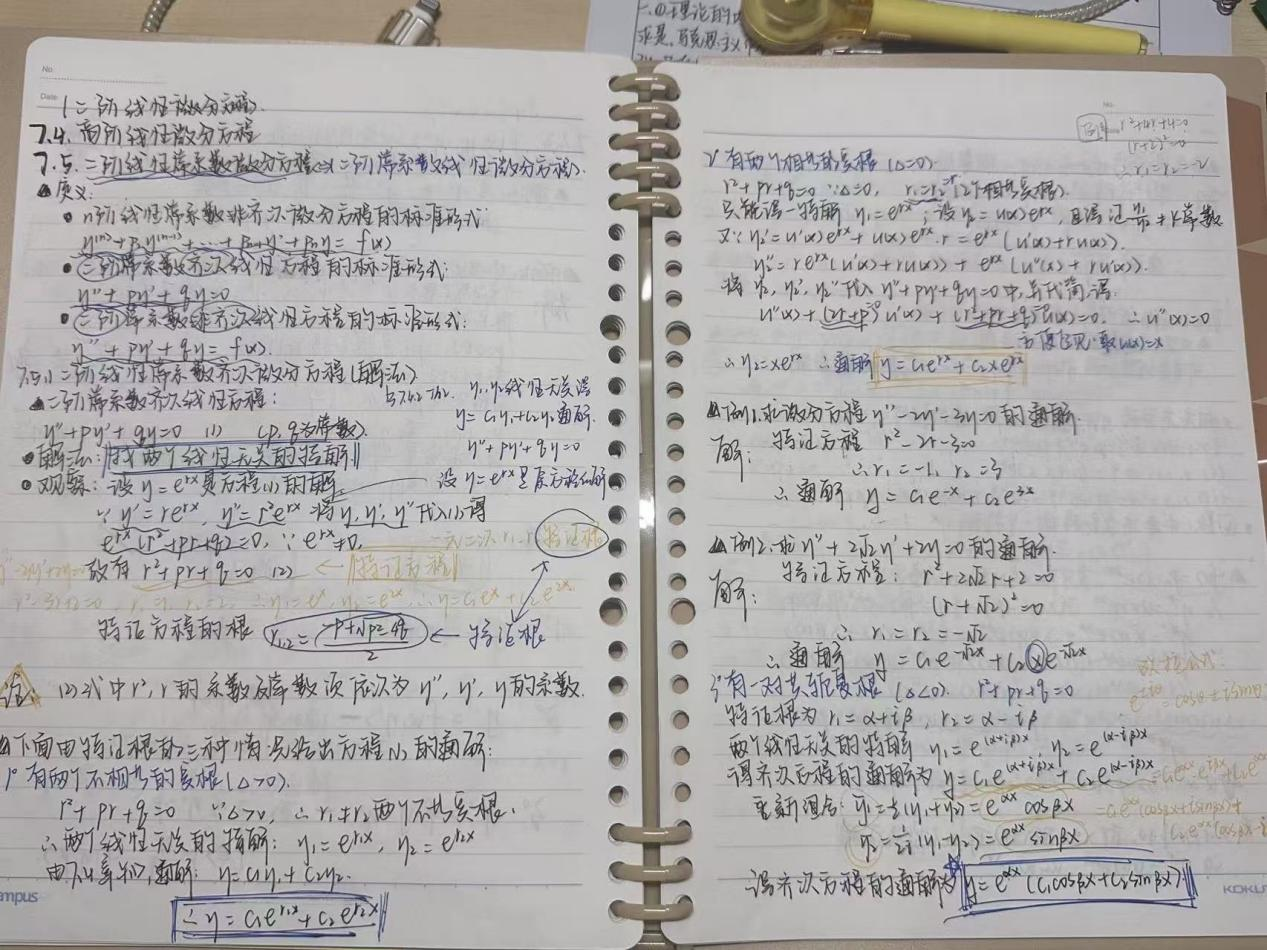 一.①理论的
求是,马克思主义
No.
Date
(二阶线性微分方程)
7.4. 高阶线性微分方程
7.5. 二阶线性常系数微分方程(二阶常系数线性微分方程).
▲定义:
● n阶线性常系数非齐次微分方程的标准形式:
y⁽ⁿ⁾+p₁y⁽ⁿ⁻¹⁾+…+pₙ₋₁y′+pₙy=f(x)
● 二阶常系数齐次线性方程的标准形式:
y″+py′+qy=0
● 二阶常系数非齐次线性方程的标准形式:
y″+py′+qy=f(x).
7.5.1 二阶线性常系数齐次微分方程(解法)
▲二阶常系数齐次线性方程:
y₁,y₂线性无关得
y=c₁y₁+c₂y₂通解
y″+py′+qy=0 (1) (p,q为常数).
y″+py′+qy=0
● 解法: 找两个线性无关的特解
● 观察: 设y=eʳˣ是方程(1)的解,
设y=eʳˣ是原方程的解
∵ y′=reʳˣ, y″=r²eʳˣ 将y,y′,y″代入(1)得
eʳˣ(r²+pr+q)=0, ∵eʳˣ≠0,
一元二次 r₁,r₂ 特征根
故有 r²+pr+q=0 (2) ← 特征方程
r²-3r+2=0, r₁=1, r₂=2, ∴y₁=eˣ, y₂=e²ˣ, ∴y=c₁eˣ+c₂e²ˣ
特征方程的根 r₁,₂=(-p±√p²-4q)/2 ← 特征根
注: (2)式中r²,r的系数及常数项依次为y″,y′,y的系数.
▲下面由特征根的三种情况给出方程(1)的通解:
1° 有两个不相等的实根(Δ>0).
r²+pr+q=0 ∵Δ>0, ∴r₁≠r₂ 两个不等实根.
∴两个线性无关的特解: y₁=eʳ¹ˣ, y₂=eʳ²ˣ
通解: y=c₁y₁+c₂y₂.
∴ y=c₁eʳ¹ˣ+c₂eʳ²ˣ
mpus
No.
例: r²+4r+4=0
(r+2)²=0
∴r₁=r₂=-2
2° 有两个相等的实根(Δ=0)
r²+pr+q=0 ∵Δ=0, r₁=r₂=r (2个相等实根).
只能得一特解 y₁=eʳˣ; 设y₂=u(x)eʳˣ, 且满足y₂/y₁≠k常数
又∵ y₂′=u′(x)eʳˣ+u(x)eʳˣ·r=eʳˣ(u′(x)+ru(x)).
y₂″=reʳˣ(u′(x)+ru(x))+eʳˣ(u″(x)+ru′(x)).
将y₂,y₂′,y₂″代入y″+py′+qy=0中,并化简得:
u″(x)+(2r+p)u′(x)+(r²+pr+q)u(x)=0. ∴u″(x)=0
方便起见,取u(x)=x
∴y₂=xeʳˣ ∴通解 y=c₁eʳˣ+c₂xeʳˣ
▲例1. 求微分方程y″-2y′-3y=0的通解.
解: 特征方程 r²-2r-3=0
∴r₁=-1, r₂=3
∴通解 y=c₁e⁻ˣ+c₂e³ˣ
▲例2. 求y″+2√2y′+2y=0的通解.
解: 特征方程: r²+2√2r+2=0
(r+√2)²=0
∴ r₁=r₂=-√2
∴通解 y=c₁e^(-√2x)+c₂xe^(-√2x)
欧拉公式:
e^(iθ)=cosθ+isinθ
3° 有一对共轭复根(Δ<0). r²+pr+q=0
特征根为r₁=α+iβ, r₂=α-iβ
两个线性无关的特解 y₁=e^(α+iβ)x, y₂=e^(α-iβ)x
得齐次方程的通解为 y=c₁e^(α+iβ)x+c₂e^(α-iβ)x =c₁e^αx·e^iβx+c₂e^αx
重新组合: ȳ₁=½(y₁+y₂)=e^αx cosβx =c₁e^αx(cosβx+isinβx)+
ȳ₂=1/2i(y₁-y₂)=e^αx sinβx c₂e^αx(cosβx-i
得齐次方程的通解为 y=e^αx(c₁cosβx+c₂sinβx)
KOKU